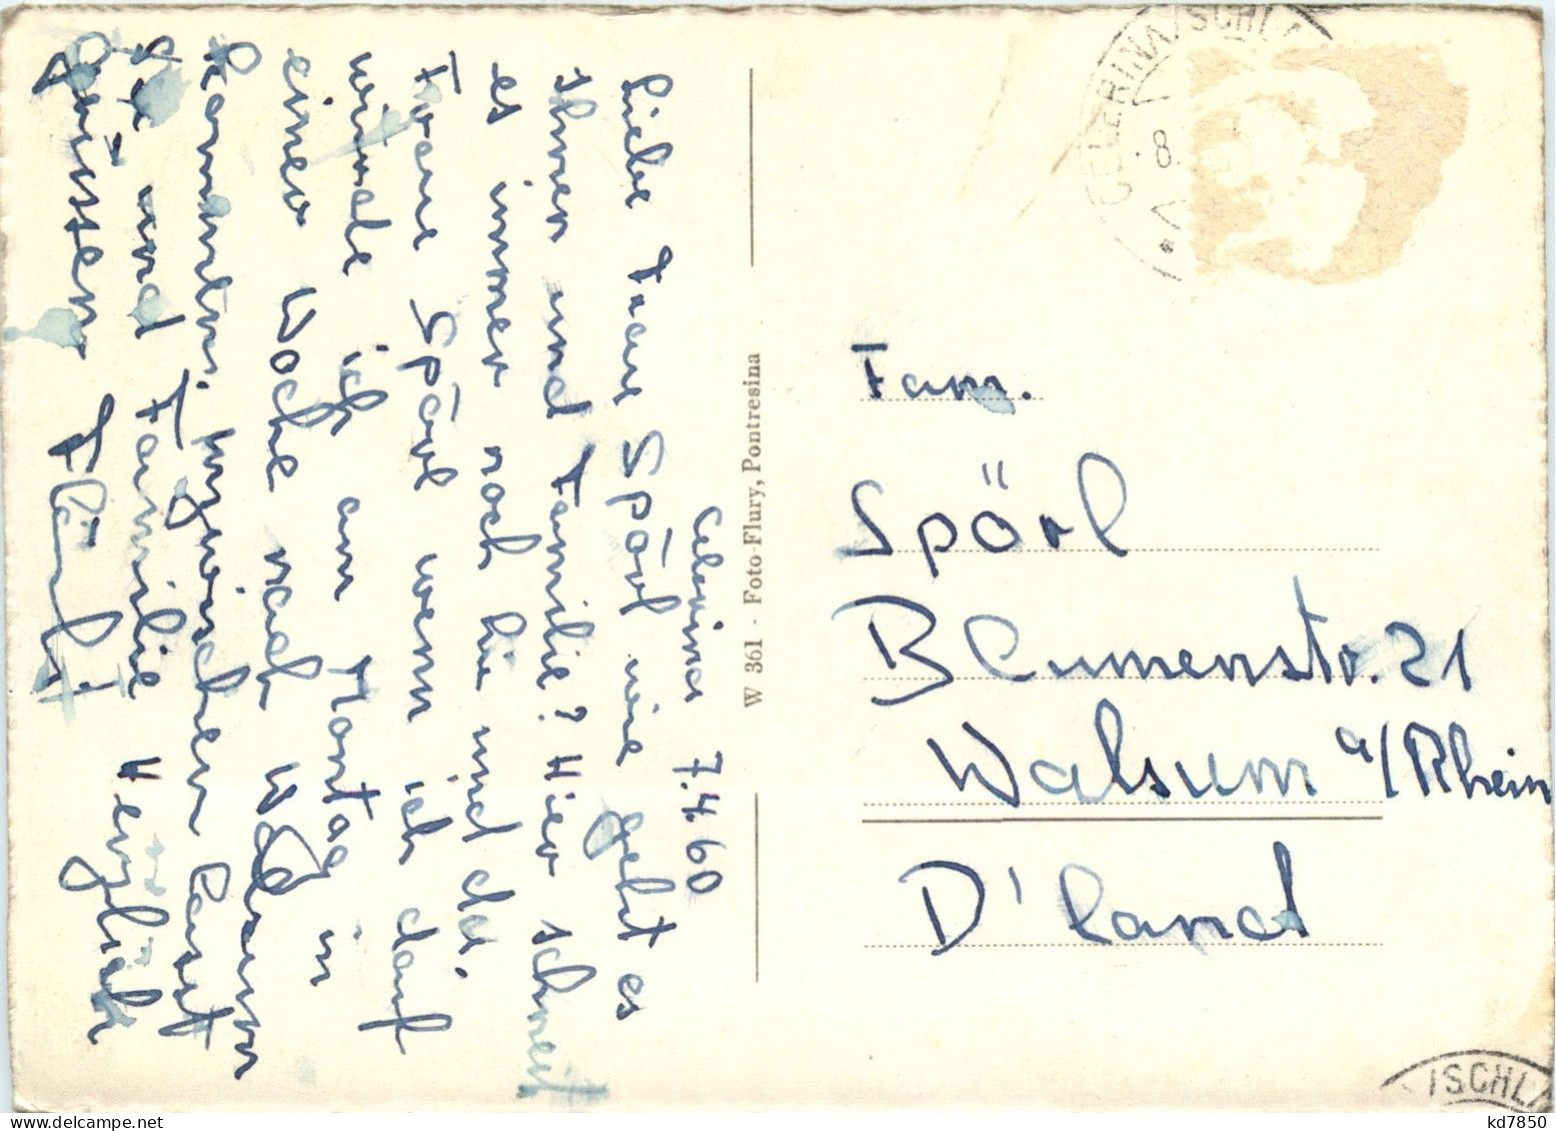 Celerina 7.4.60
Liebe Frau Spörl wie geht es
Ihnen und Familie? Hier schneit
es immer noch hie und da.
Frau Spörl wenn ich darf
würde ich am Montag in
einer Woche nach Walsum
kommen. Inzwischen lasst
Sie und Familie Herzlich
Grüssen
W 361 - Foto Flury, Pontresina
CELERINA/SCHLA
8.
Fam.
Spörl
Blumenstr. 21
Walsum a/Rhein
D'land
/SCHLA
kd7850